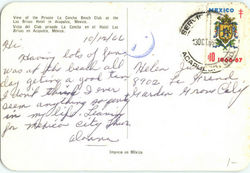 View of the Private La Concha Beach Club at the
Las Brisas Hotel in Acapulco, Mexico.
Vista del Club privado La Concha en el Hotel Las
Brisas, en Acapulco, México.
10/12/66
Hi
Having lots of fun
was at the beach all
day getting a good tan
I don't think I ever
seen anything so pretty
in my life. Leaving
for Mexico City then
MEXICO
1966-67
Helen
9702 La
Garden Grove Calif
Impreso en México